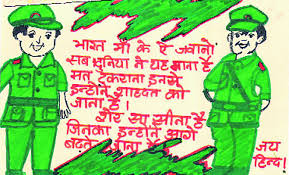 भारत माँ के ऐ जवानों
सब दुनिया ने यह माना है
मत टकराना इनसे
इन्होंने शाहदत को
जाना है!
शेर सा सीना है
जिनका इन्होंने आगे
बढ़ते जाना है
जय
हिन्द!